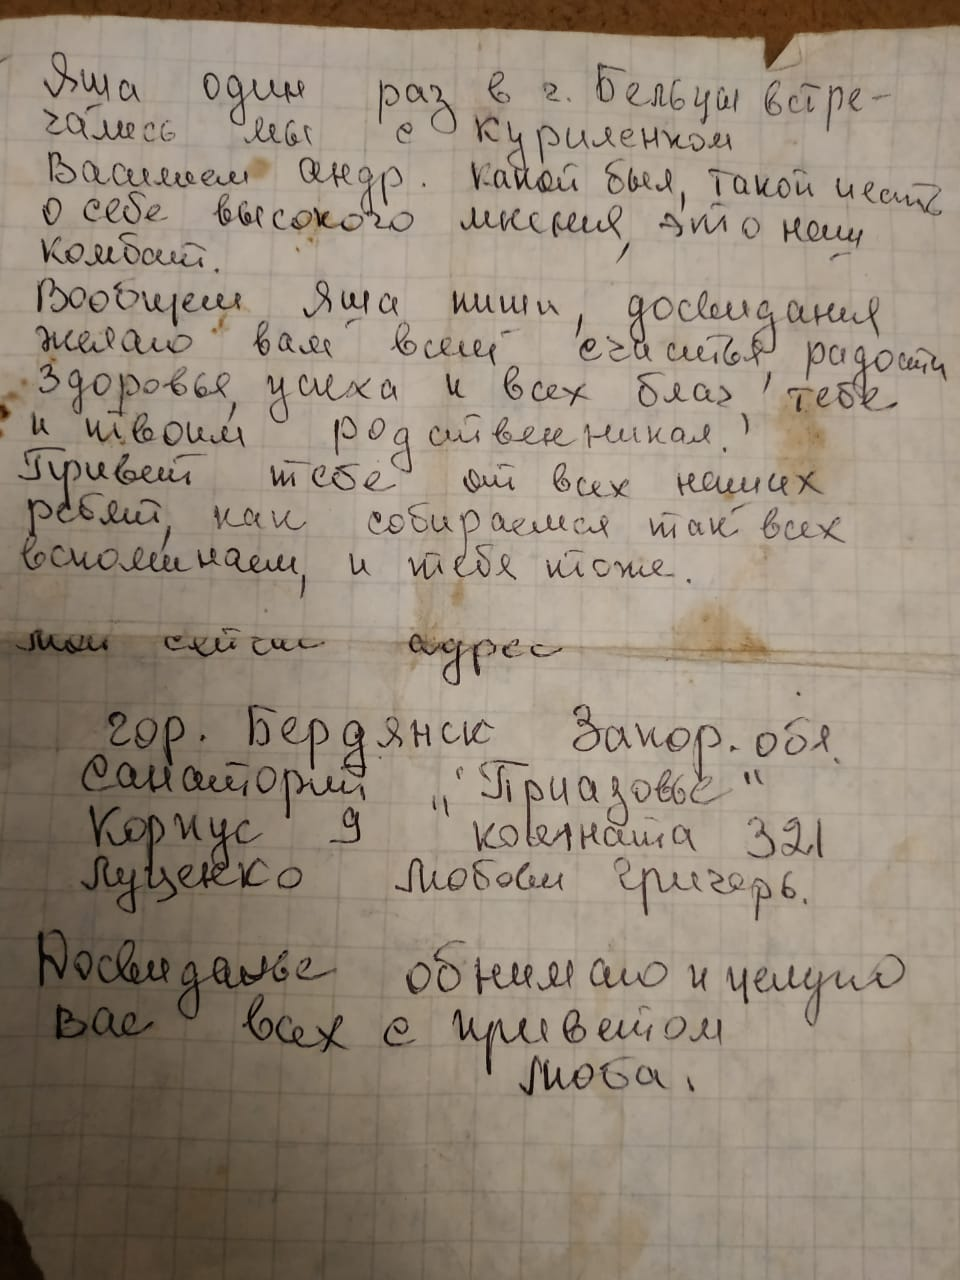 Яша один раз в г. Бельцы встре-
чались мы с Куриленком
Василием Андр. какой был, такой и есть
о себе высокого мнения, это наш
комбат.
Вообщем Яша пиши, досвидания
желаю вам всем счастья, радости
здоровья, успеха и всех благ, тебе
и твоим родственникам.
Привет тебе от всех наших
ребят, как собираемся так всех
вспоминаем, и тебя тоже.
мой сейчас адрес
гор. Бердянск Запор. обл.
Санаторий "Приазовье"
Корпус 9 комната 321
Луценко Любови Григорь.
Досвиданье обнимаю и целую
Вас всех с приветом
Люба.